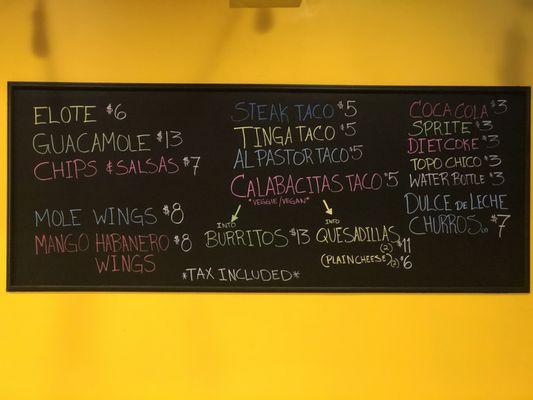 ELOTE $6
GUACAMOLE $13
CHIPS & SALSAS $7
MOLE WINGS $8
MANGO HABANERO $8
WINGS
STEAK TACO $5
TINGA TACO $5
AL PASTOR TACO $5
CALABACITAS TACO $5
*VEGGIE/VEGAN*
INTO
BURRITOS $13
INTO
QUESADILLAS
(2) $11
(PLAIN CHEESE) (2) $6
*TAX INCLUDED*
COCA COLA $3
SPRITE $3
DIET COKE $3
TOPO CHICO $3
WATER BOTTLE $3
DULCE DE LECHE
CHURROS $7